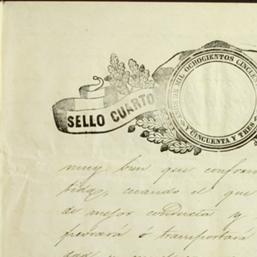 SELLO CUARTO
MIL OCHOCIENTOS CINCUE
Y CINCUENTA Y TRES
muy bien que conform
cuando el que
de mejor conducta y
ó transportará